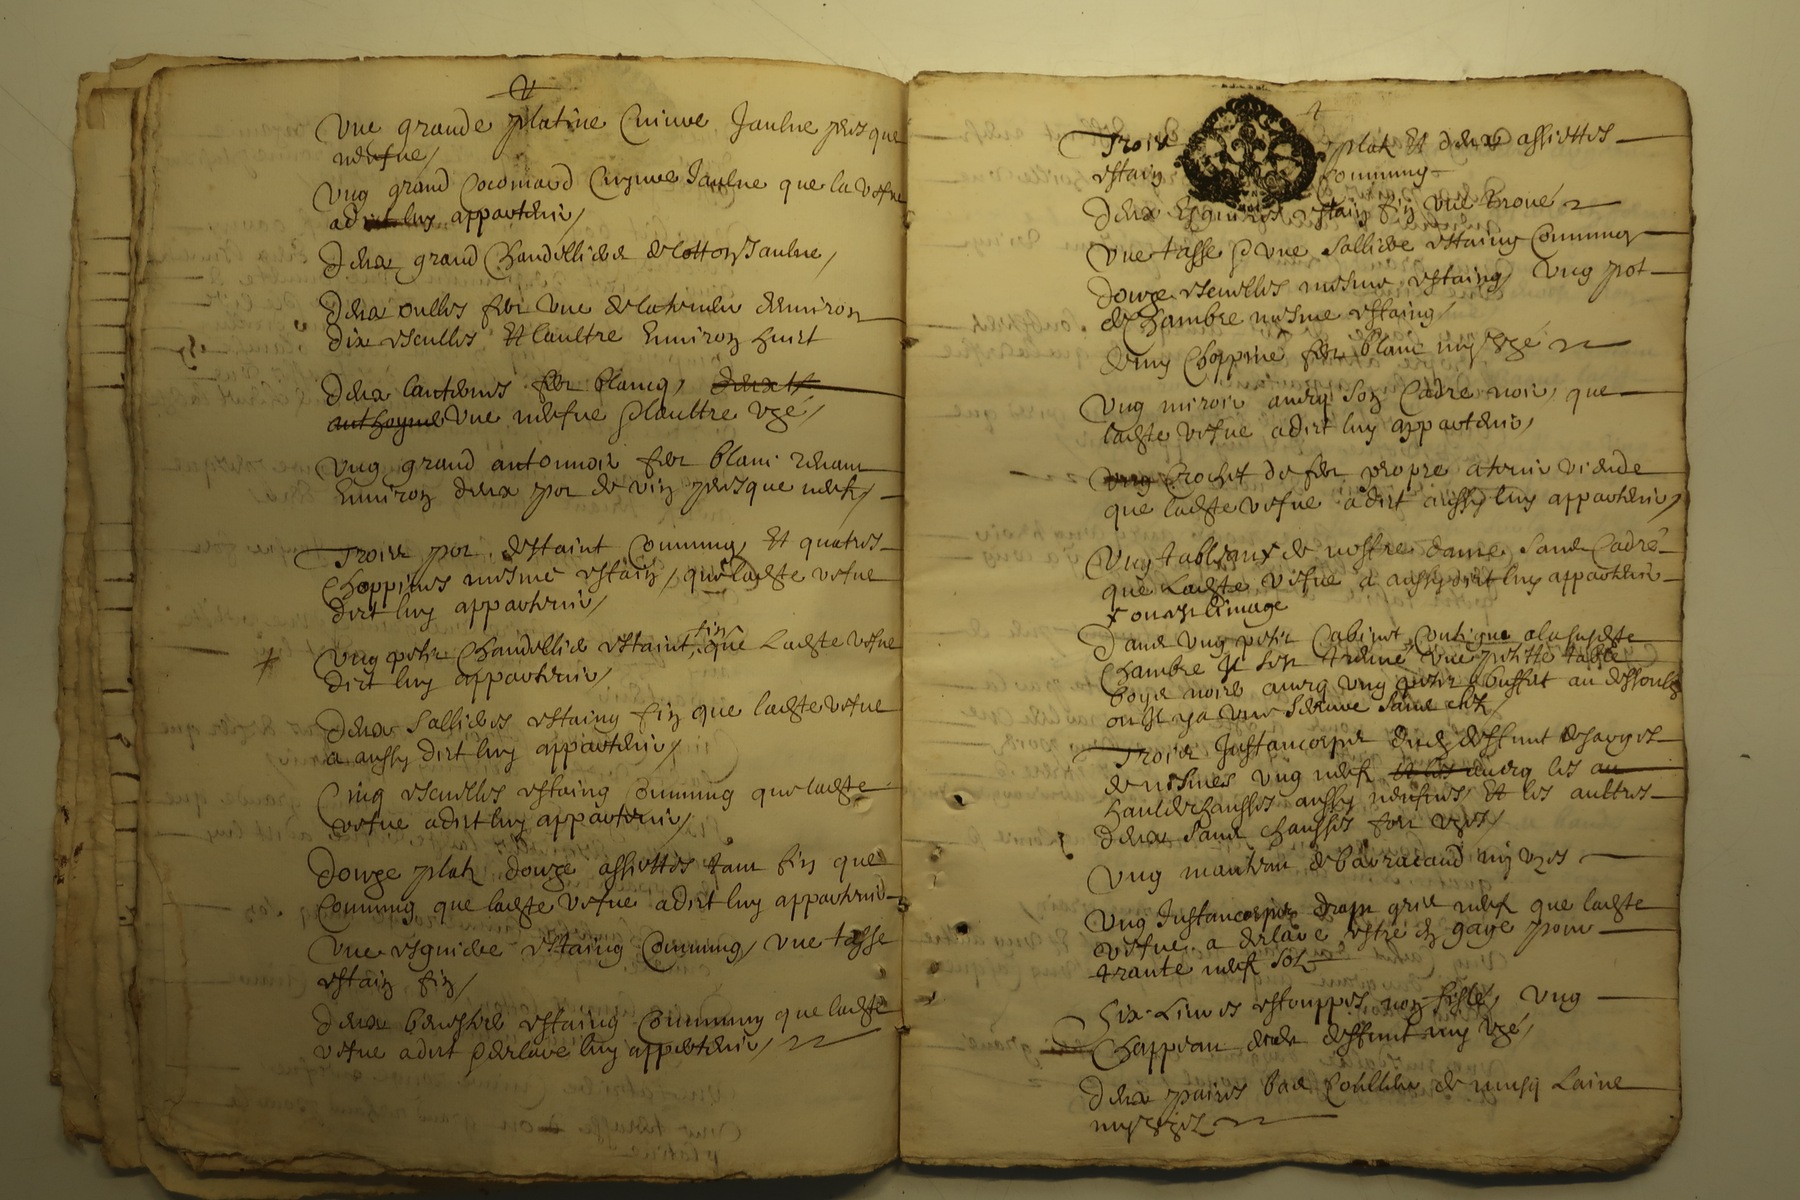 Une grande platine Cuivre Jaulne presque
neufve /
Ung grand Cocomard Cuyvre Jaulne que la vefve
a dict luy appartenir /
Deux grand Chandelliers de lotton Jaulne /
Deux oulles fer une de la teneur denviron
dix escuelles Et laultre Environ huict
Deux lanternes fer blancq, deux
anthoyne Une neufve & laultre uzé /
Ung grand antonnoir fer blanc tenant
Environ deux pot de vin presque neuf /
Trois pot destaint Commung Et quatres
Choppines mesme estain, que ladite vefve
dict luy appartenir /
Ung petit Chandellier estaint fin que Ladite vefve
dict luy appartenir /
Deux Sallieres estaing fin que ladite vefve
a aussy dict luy appartenir /
Cinq escuelles estaing Commung que ladite
vefve a dict luy appartenir /
Douze platz douze assiettes tant fin que
Commung que ladite vefve a dict luy appartenir
Une esguiere estaing Commung, une tasse
estain fin /
Deux estaing Commung que ladite
vefve a dict & declaré luy appartenir /
4
Trois platz Et deux assiettes
estain Commung
Deux Esguieres estain fin une troué
Une tasse & une Salliere estaing Commung
Douze escuelles mesme estaing, Ung pot
de Chambre mesme estaing /
Demy Choppine fer blanc my uzé
Ung miroir avecq son Cadre noir, que
ladite vefve a dict luy appartenir,
Ung Crochet de fer propre a tenir viende
que ladite vefve a dict aussy luy appartenir /
Ung tableaux de nostre dame sans Cadre
que Ladite vefve a aussy dict luy appartenir
ou est limage
Dans Ung petit Cabinet Contigue a la susdite
Chambre Il sest treuvé une petitte table
boys noier avecq ung petit buffet au dessoubz
ou Il y a une serrure sans clef /
Trois Justaucorps dudit deffunt de sarges
de nismes Ung neuf et les avecq les au
hauldechausses aussy neufves Et les aultres
deux sans chausses fort uzés /
Ung manteau de barracand my uzés
Ung Justaucorps drapt gris neuf que ladite
vefve a declaré estre en gage pour
trante neuf solz
Six Livres estouppes non fislé, Ung
Chappeau dudit deffunt my uzé /
Deux paires bas de Laine
my uzés